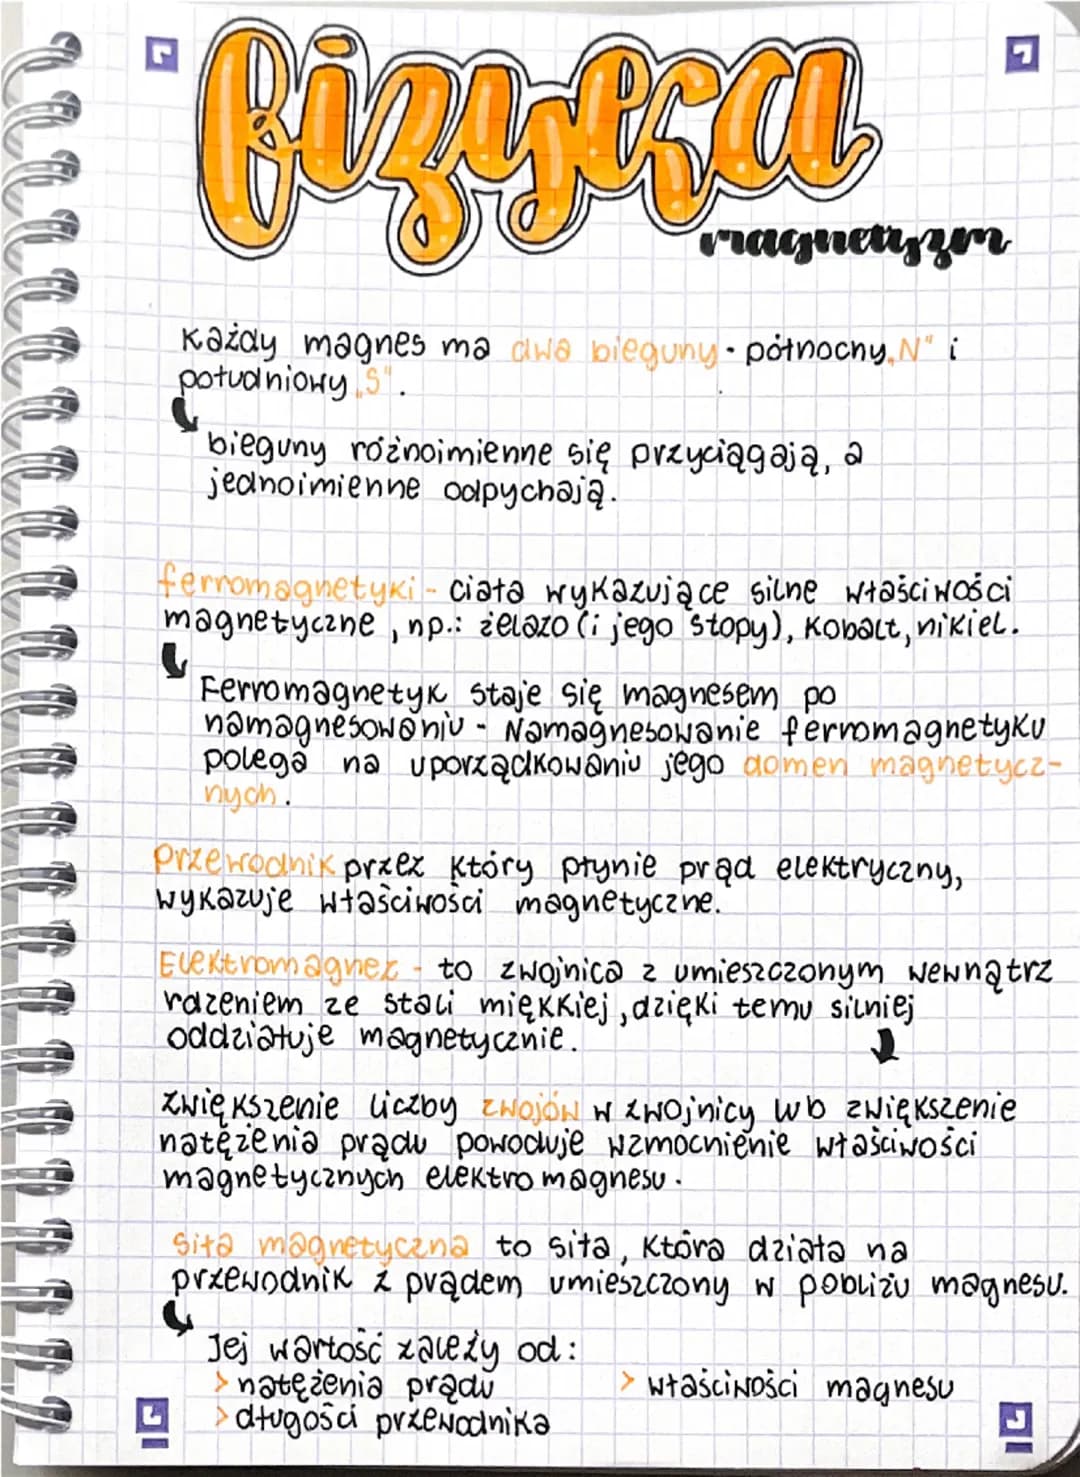 fizyka
magnetyzm
Każdy magnes ma dwa bieguny - północny „N" i
południowy „S".
bieguny różnoimienne się przyciągają, a
jednoimienne odpychają.
ferromagnetyki - ciała wykazujące silne właściwości
magnetyczne, np.: żelazo (i jego stopy), kobalt, nikiel.
Ferromagnetyk staje się magnesem po
namagnesowaniu - Namagnesowanie ferromagnetyku
polega na uporządkowaniu jego domen magnetycz-
nych.
Przewodnik przez który płynie prąd elektryczny,
wykazuje właściwości magnetyczne.
Elektromagnez - to zwojnica z umieszczonym wewnątrz
rdzeniem ze stali miękkiej, dzięki temu silniej
oddziałuje magnetycznie.
Zwiększenie liczby zwojów w zwojnicy lub zwiększenie
natężenia prądu powoduje wzmocnienie właściwości
magnetycznych elektromagnesu.
Siła magnetyczna to siła, która działa na
przewodnik z prądem umieszczony w pobliżu magnesu.
Jej wartość zależy od:
> natężenia prądu > właściwości magnesu
> długości przewodnika